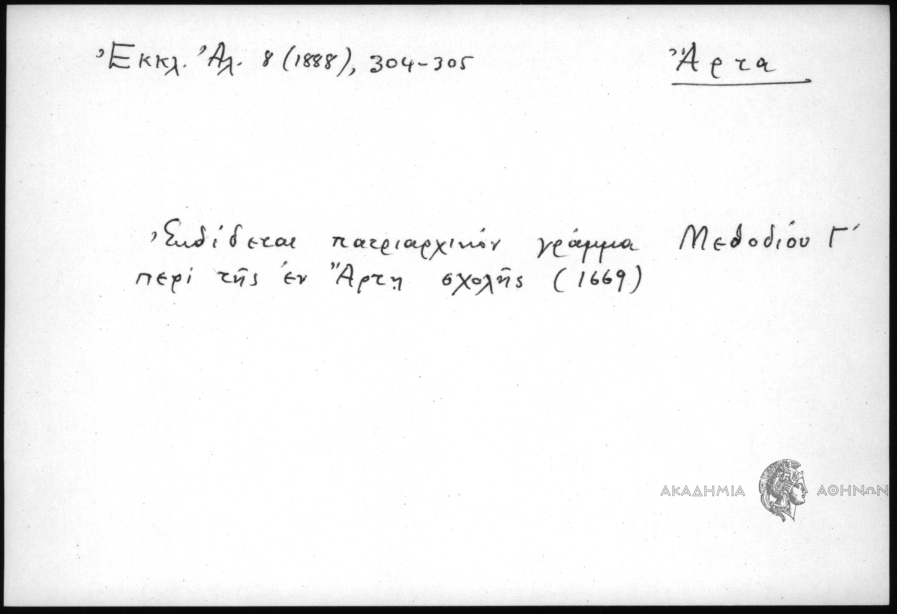 Ἐκκλ. Ἀλ. 8 (1888), 304-305
Ἄρτα
Ἐκδίδεται πατριαρχικόν γράμμα Μεθοδίου Γ΄
περί τῆς ἐν Ἄρτῃ σχολῆς (1669)
ΑΚΑΔΗΜΙΑ ΑΘΗΝΩΝ